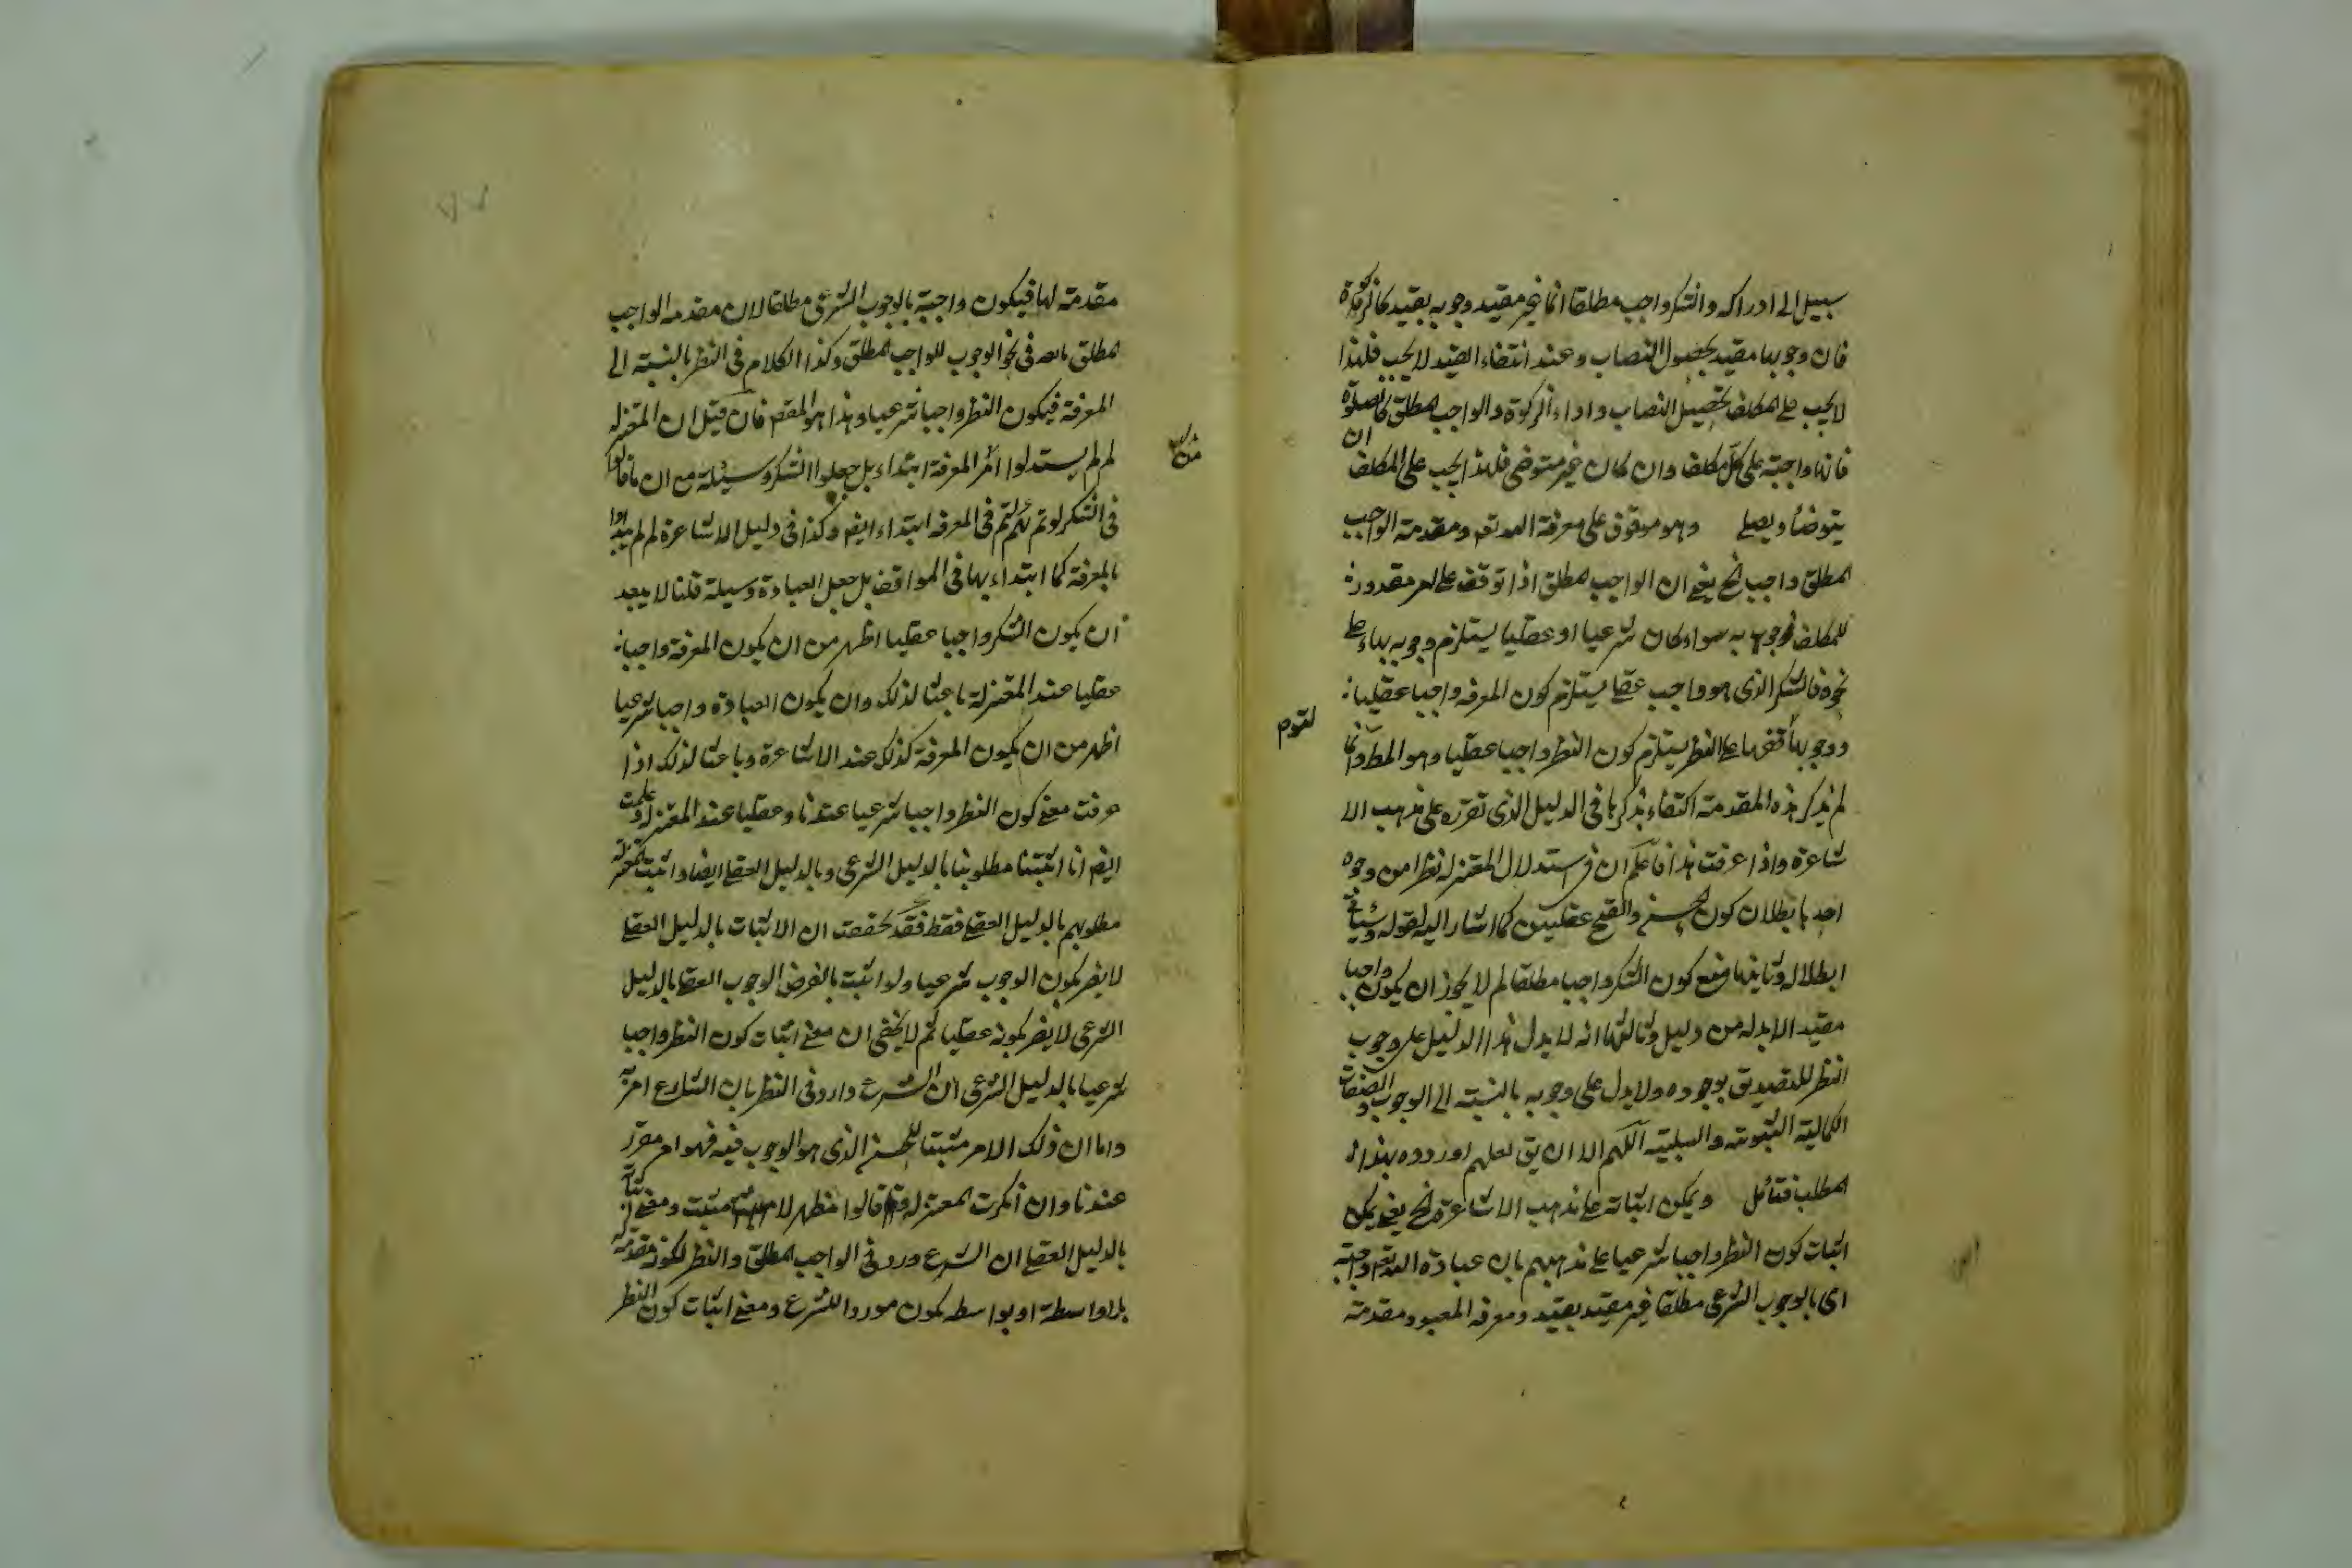 سبيل الى ادراكه والشكر واجب مطلقا اى غير مقيد وجوبه بقيد كالزكوة
فان وجوبها مقيد بحصول النصاب وعند انتفاء القيد لا يجب فلهذا
لا يجب على المكلف تحصيل النصاب واداء الزكوة والواجب المطلق كالصلوة
فانها واجبة على كل مكلف وان كان غير متوضى فلهذا يجب على المكلف ان
يتوضأ ويصلى وهو موقوف على معرفة الله تعم ومقدمة الواجب
المطلق واجب الخ يعنى ان الواجب المطلق اذا توقف على امر مقدور
للمكلف فوجوبه سواء كان شرعيا او عقليا يستلزم وجوبه بناء على
نحوه فالشكر الذى هو واجب عقلى يستلزم كون المعرفة واجبا عقليا
ووجوبها على النظر يستلزم كون النظر واجبا عقليا وهو المط وانما
لتوم
لم يذكر هذه المقدمة اكتفاء بذكرها فى الدليل الذى تقرره على مذهب الا
شاعرة واذا عرفت هذا فاعلم ان فى استدلال المعتزلة نظرا من وجوه
احدها بطلان كون الحسن والقبح عقليين كما اشار اليه بقوله وسياتى
ابطلاله وثانيها منع كون الشكر واجبا مطلقا لم لا يجوز ان يكون واجبا
مقيدا لا بد له من دليل وثالثها انه لا يدل هذا الدليل على وجوب
النظر للتصديق بوجوده ولا يدل على وجوبه بالنسبة الى الوجوب والصفات
الكمالية الثبوتية والسلبية اللهم الا ان يق لعلهم اوردوه بهذا
المطلب فتأمل ويمكن اثباته على مذهب الاشاعرة الخ يعنى يمكن
اثبات كون النظر واجبا شرعيا على مذهبهم بان عبادة الله تعم واجبة
اى بالوجوب الشرعى مطلقا غير مقيد بقيد ومعرفة المعبود مقدمة
مقدمة لها فيكون واجبة بالوجوب الشرعى مطلقا لان مقدمة الواجب
المطلق فى نحو الوجوب للواجب المطلق وكذا الكلام فى النظر بالنسبة الى
المعرفة فيكون النظر واجبا شرعيا وهذا هو المقصم فان قيل ان المعتزلة
لم لم يستدلوا المعرفة ابتداء بل جعلوا الشكر وسيلة مع ان ما قالوا
فى الشكر لو تم لتم فى المعرفة ابتداء ايضم وكذا فى دليل الاشاعرة لم لم يبدأوا
بالمعرفة كما ابتداء بها فى المواقف بل جعل العبادة وسيلة قلنا لا يبعد
ان يكون الشكر واجبا عقليا اظهر من ان يكون المعرفة واجبا
عقليا عند المعتزلة باعثا لذلك وان يكون العبادة واجبا شرعيا
اظهر من ان يكون المعرفة كذلك عند الاشاعرة وباعثا لذلك اذا
عرفت معنى كون النظر واجبا شرعيا عندنا وعقليا عند المعتزلة وعلمت
ايضم انا اثبتنا مطلوبنا بالدليل الشرعى وبالدليل العقلى ايضا واثبت المعتزلة
مطلوبهم بالدليل العقلى فقط فقد تحققت ان الاثبات بالدليل العقلى
لا يضر بكون الوجوب شرعيا ولو اثبت بالفرض الوجوب العقلى بالدليل
الشرعى لا يضر بكونه عقليا ثم لا يخفى ان معنى اثبات كون النظر واجبا
شرعيا بالدليل الشرعى ان الشرع وارد فى النظر بان الشارع امر به
واما ان ذلك الامر مثبتا للحسن الذى هو الوجوب فيه فهو امر مقرر
عندنا وان انكرت المعتزلة قالوا مظهر لا مثبت ومعنى
بالدليل العقلى ان الشرع ورد فى الواجب المطلق والنظر لكونه مقدمة
بلا واسطة او بواسطة يكون موردا للشرع ومعنى اثبات كون النظر